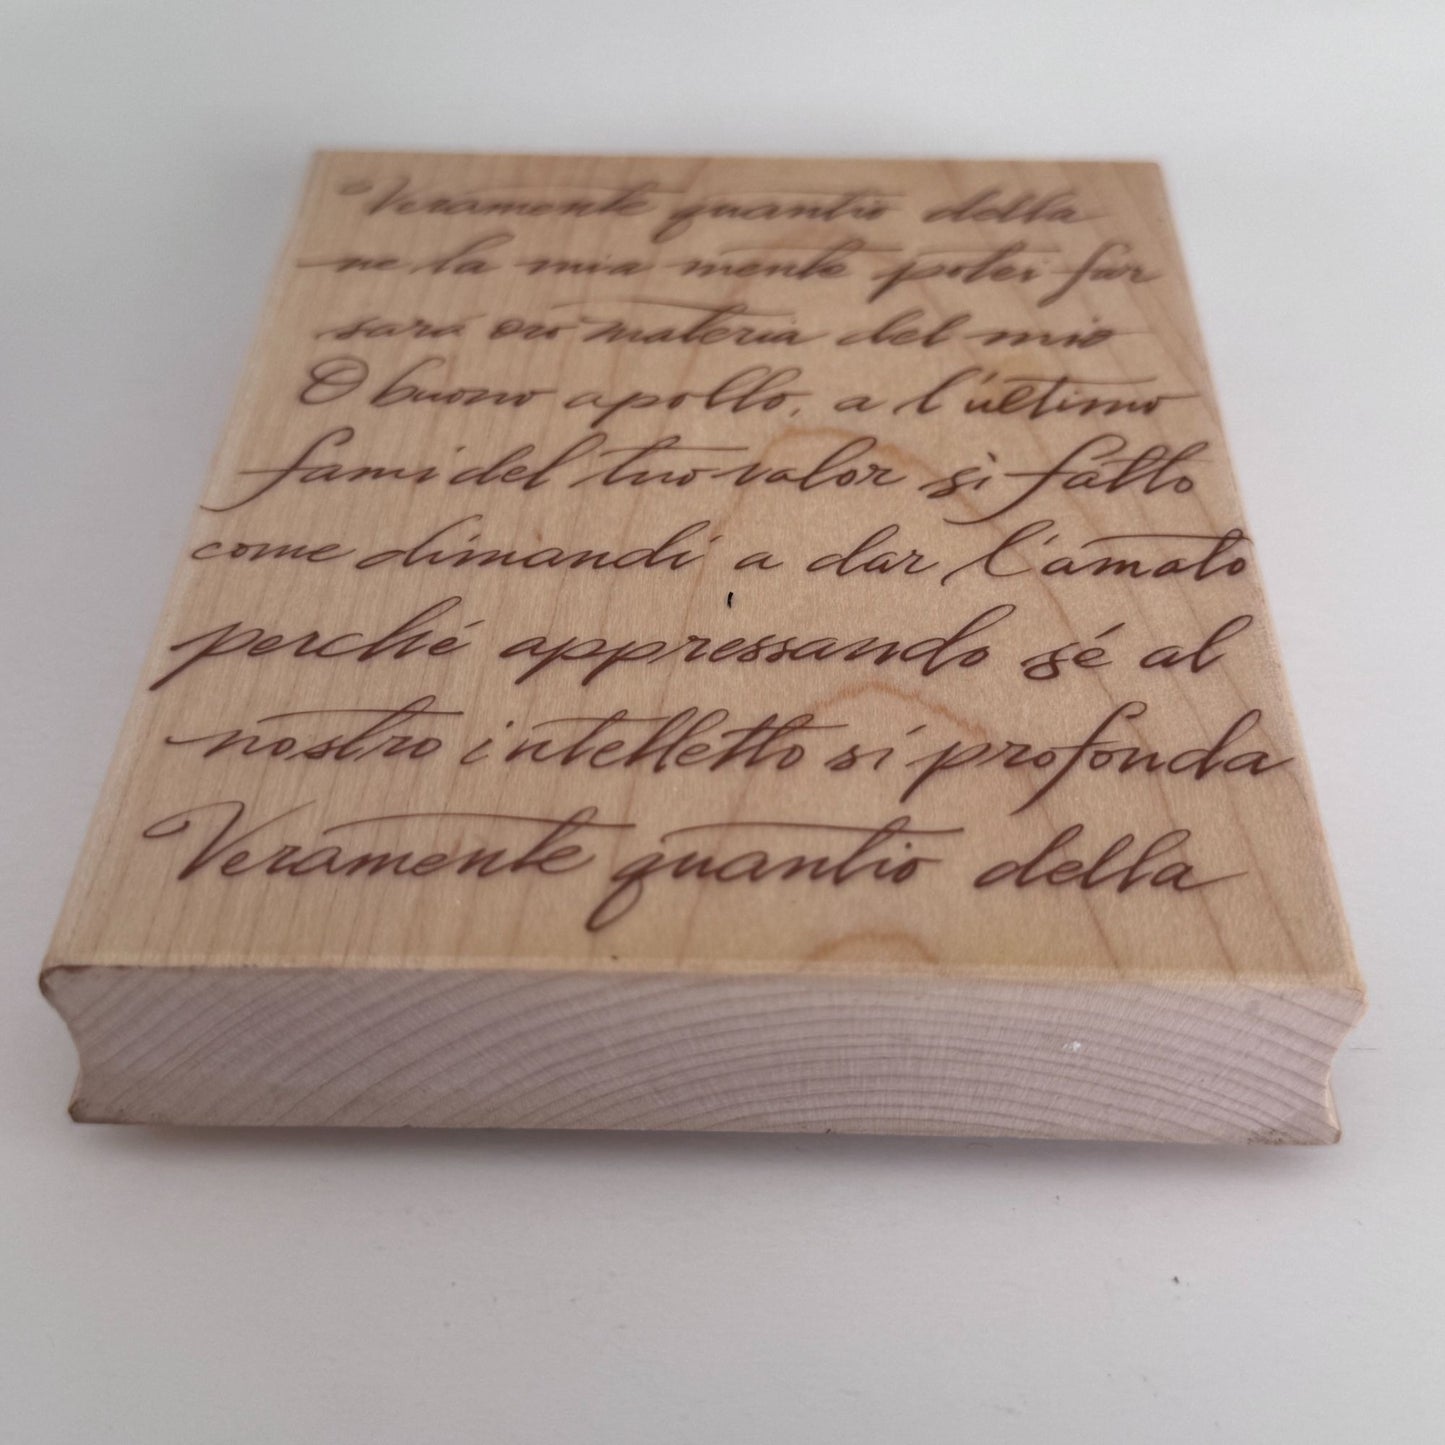 Veramente quantio della
ne la mia mente potei far
sarà oro materia del mio
O buono apollo, a l'ultimo
fami del tuo valor sì fatto
come dimandi a dar l'amato
perché appressando sé al
nostro intelletto si profonda
Veramente quantio della